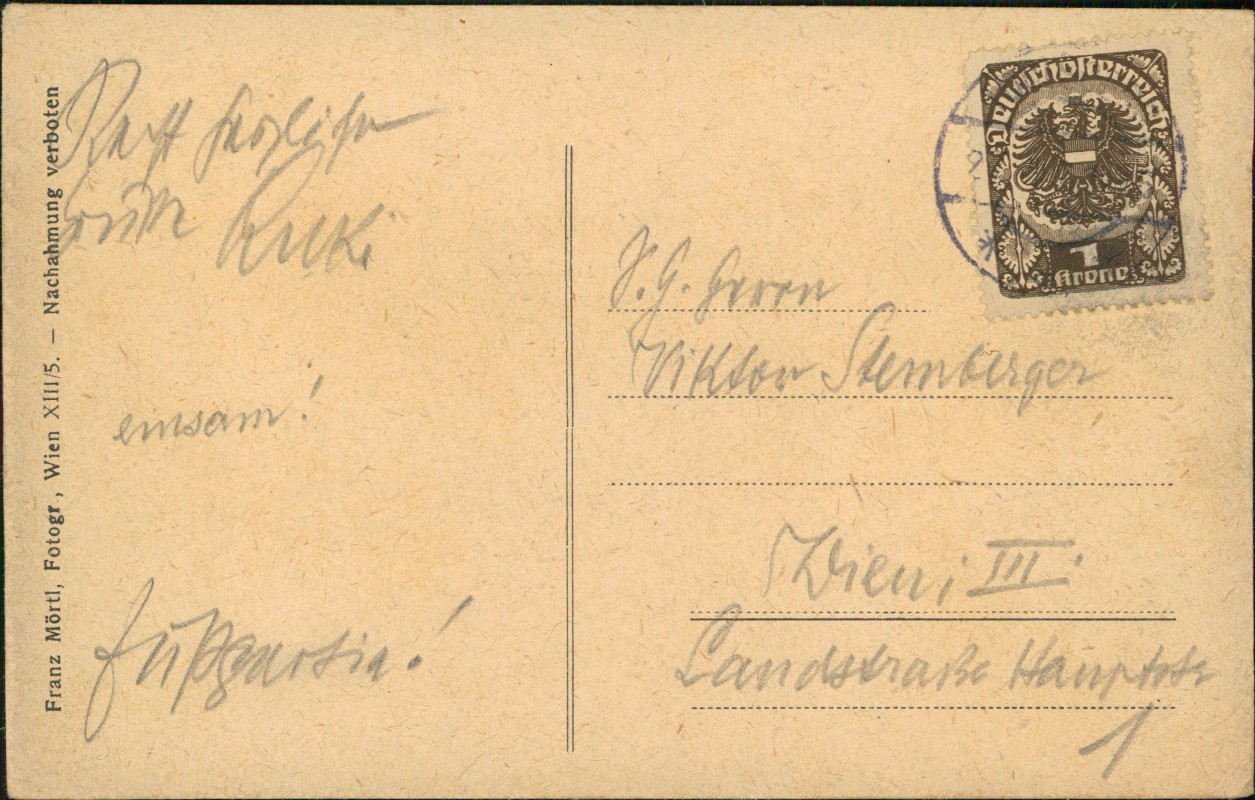 Franz Mörtl, Fotogr., Wien XIII/5. — Nachahmung verboten
Recht herzliche
einsam!
Fußpartie!
Deutschösterreich
1
Krone
S. G. Herrn
Viktor Sternberger
Wien; III.
Landstraße Hauptstr
1